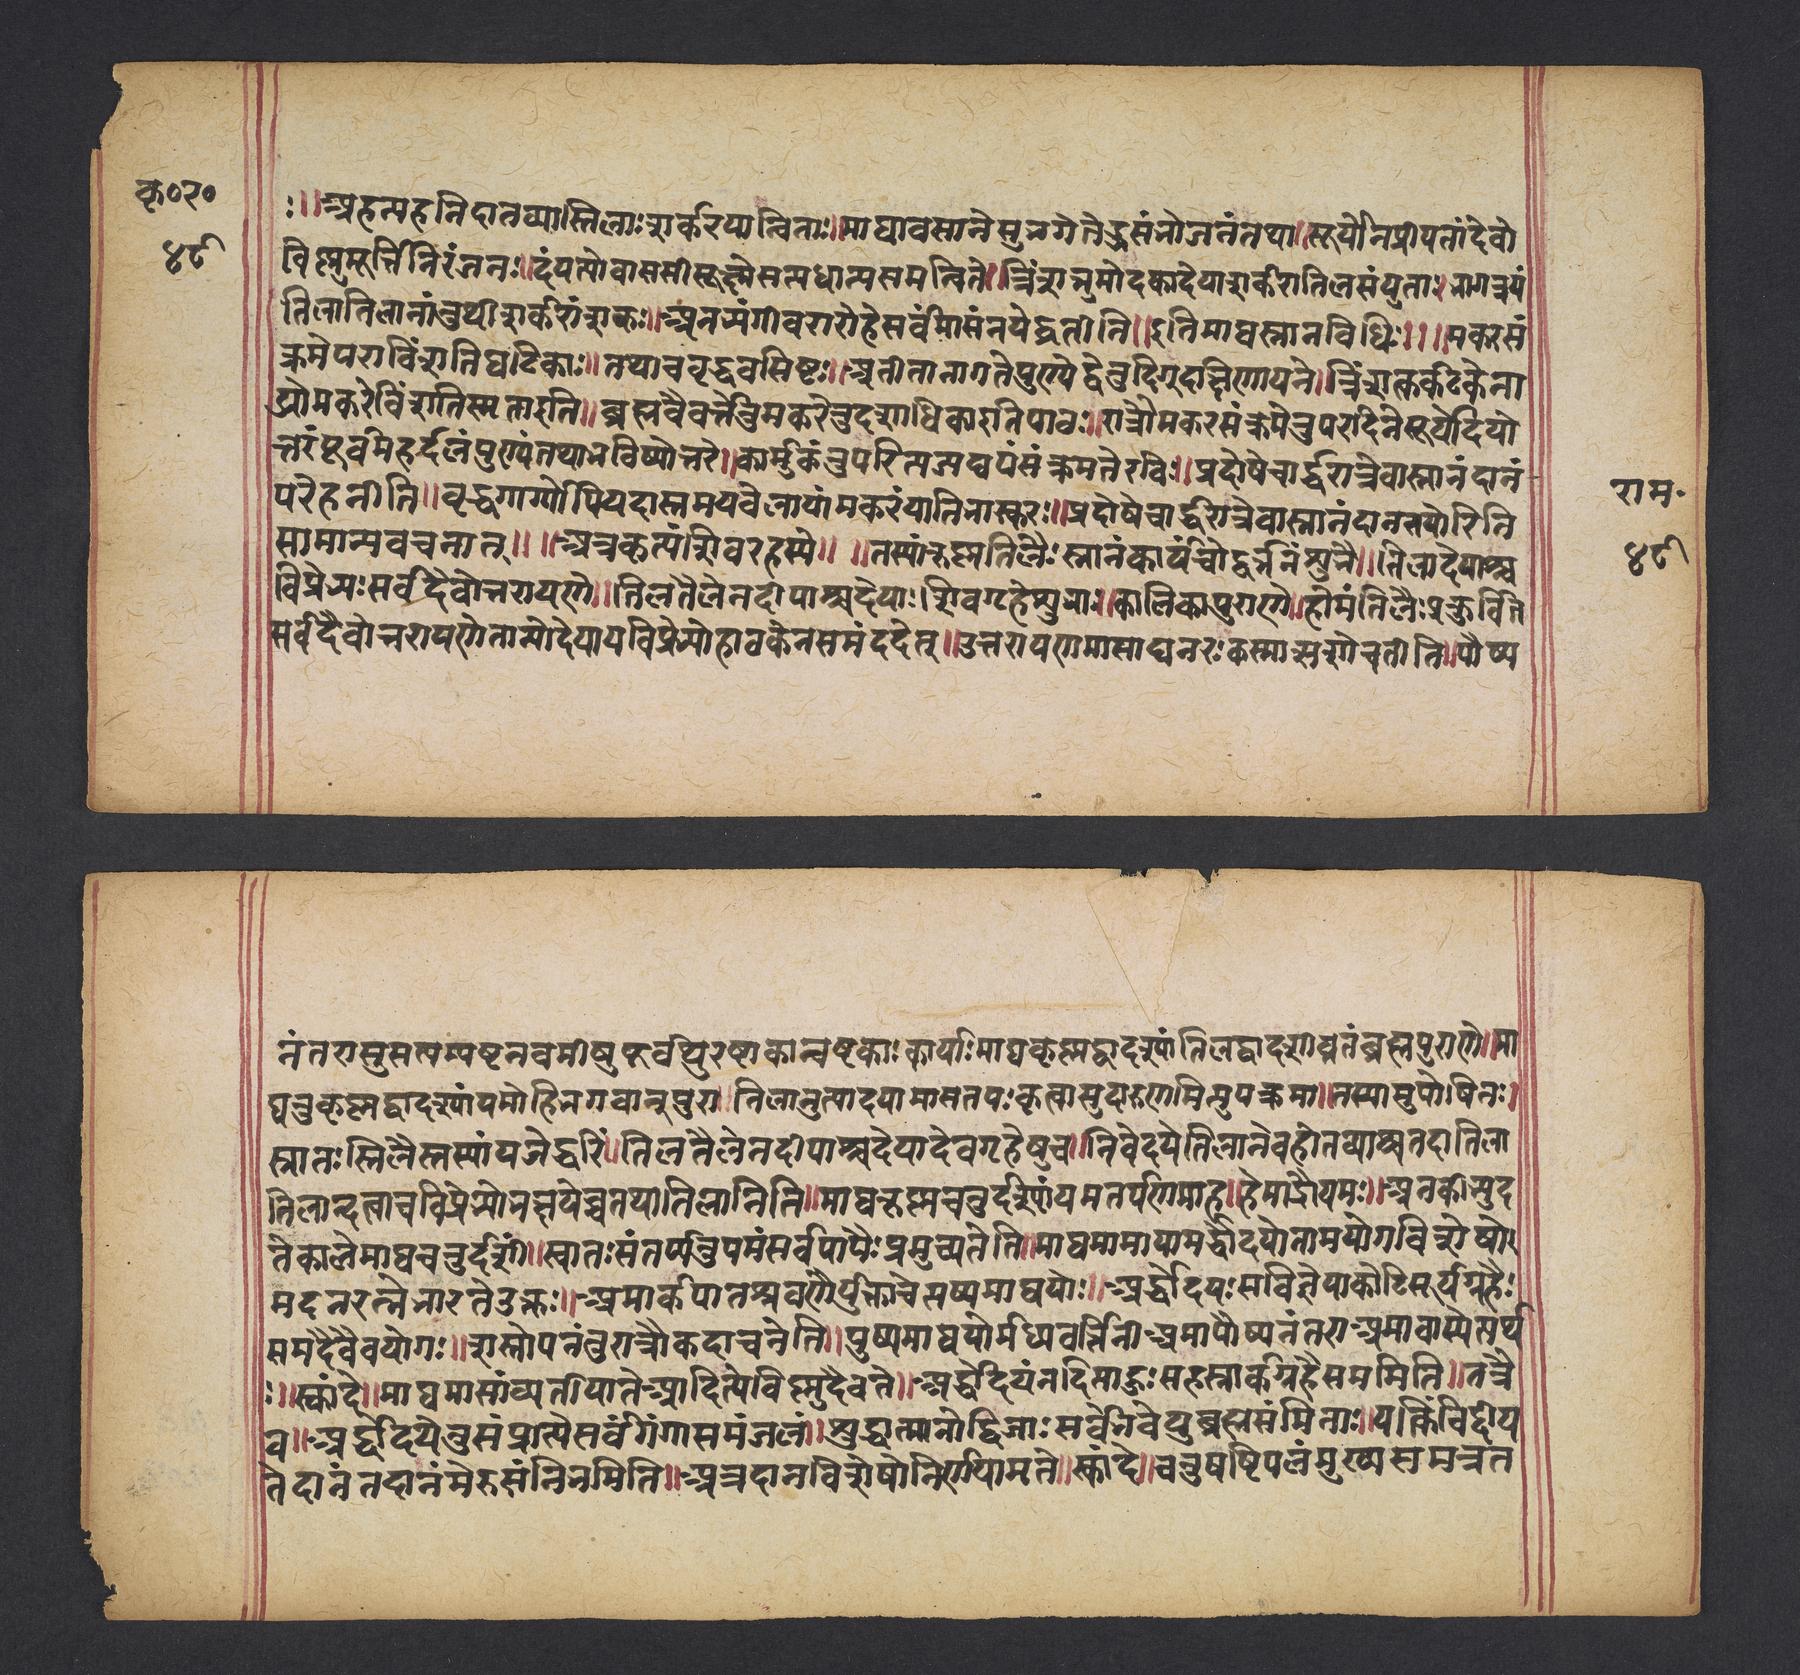 कृ०र०
४८
:॥अहन्यहनिदातव्यास्तिलाःशर्करयान्विताः॥माघावसानेसुभगेतैद्रसंभोजनंतथा॥सूर्योनिप्रीयतांदेवो
विष्णुमूर्त्तिनिरंजनः॥दंपत्योवाससीसूक्ष्मेसप्तधान्यसमन्विते॥त्रिंशत्तुमोदकादेयाशर्करातिलसंयुताः॥भागत्रयं
तिलातिलानांतुर्थीशर्करांशकः॥अनभ्यंगीवरारोहेसर्वंमासंनयेद्व्रतीति॥इतिमाघस्नानविधिः॥॥मकरसं
क्रमेपराविंशतिघटिकाः॥तथाचवृद्धवसिष्टः॥अतीतानागतेपुण्येद्वेतुदिगुदाक्षिणायने॥त्रिंशत्कर्कटकेना
प्रोमकरेविंशतिस्मताइति॥ब्रह्मवैवर्त्तेतुमकरेतुदशाधिकाइतिपाठः॥रात्रौमकरसंक्रमेतुपरादिनेसूर्योदयो
त्तरंपूर्वमेहर्दलंपुण्यंतथाभविष्योत्तरे॥कार्मुकंतुपरित्यज्यझषंसंक्रमतेरविः॥प्रदोषेचार्द्धरात्रेवास्नानंदानं
परेहनीति॥वृद्धगार्ग्योपियदास्तमयवेलायांमकरंयातिभास्करः॥प्रदोषेचार्द्धरात्रेवास्नानंदानत्तयोरिति
सामान्यवचनात्॥॥अत्रकृत्यंशिवरहस्ये॥॥तस्यांकृष्णतिलैः॑स्नानंकार्यंचोद्वर्त्तनंशुभै॥तिलादेयाश्च
विप्रेभ्यःसर्वदैवोत्तरायणे॥तिलतैलेनदीपाश्चदेयाःशिवगृहेशुभाः॥कालिकापुराणे॥होमंतिलैःप्रकुर्वित
सर्वदैवोत्तरायणेतान्योदेयायविप्रेभ्योहाटकेनसमंददेत्॥उत्तरायणमासाद्यनरःकस्माछृणोचतीति॥पौष्य
राम॰
४८
नंतरासुसप्तम्यष्टनवमीषुपूर्वेद्युरष्टाकान्वष्टकाःकार्याःमाघकृष्णद्वादश्यांतिलद्वादशीव्रतंब्रह्मपुराणे॥मा
घतुकृष्णद्वादश्यांयमोहिभगवान्पुरा॥तिलानुत्पादयामासतपःकृत्वासुदारुणमित्युपक्रमा॥तस्यासुपोषितः॥
स्नातःस्तिलैस्तस्यांयजेद्धरिं॥तिलतैलेनदीपाश्चदेयादेवगृहेषुच॥निवेदयेतिलानेवहोतव्याश्चतदातिला
तिलान्दत्वाचविप्रेभ्योभक्षयेच्चतथातिलानिति॥माघकृष्णचतुर्दश्यांयमतर्पणमाह॥हेमाद्रौयमः॥अनर्काभ्युद
तेकालेमाघचतुर्दशीं॥स्नातःसंतर्प्यतुयमंसर्वपापैःप्रमुच्यतेति॥माघमामायामर्द्धोदयोनामयोगविशेषो॥
मदनरत्नेभारतेउक्तः॥अमार्कपातश्रवणैर्युक्ताचेत्पष्यमाघयोः॥अर्द्धोदयःसविज्ञेयाकोटिसूर्यग्रहैः
समदैवैवयोगः॥शस्तोयनंतुरात्रौकदाचनेति॥पुष्यमाघयोर्मध्यवर्त्तिनीअमापौष्यनंतराअमावास्येत्यर्थ
:॥स्कांदे॥माघमासांव्यतीपातेआदित्येविष्णुदैवते॥अर्द्धोदयंनदिमाहुःसहस्नार्कग्रहैसममिति॥तत्रै
व॥अर्द्धोदयेतुसंप्राप्तेसर्वंगंगासमंजलं॥शुद्धात्मानोद्विजाःसर्वेभवेयुब्रह्मसंमिताः॥यत्किंविद्दीय
तेदानंतद्दानंमेरुसंनिभमिति॥अत्रदानविशेषोनिर्णयामते॥स्कांदे॥चतुषष्टिपलंमुख्यसमत्रत